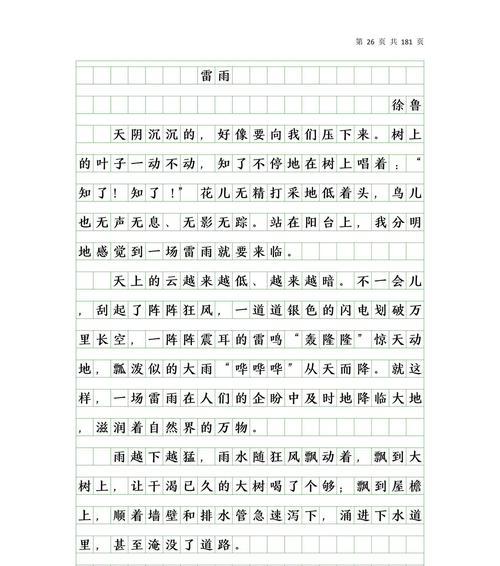 第 26 页 共 181 页
雷雨
徐鲁
天阴沉沉的，好像要向我们压下来。树上
的叶子一动不动，知了不停地在树上唱着：“
知了！知了！”花儿无精打采地低着头，鸟儿
也无声无息、无影无踪。站在阳台上，我分明
地感觉到一场雷雨就要来临。
天上的云越来越低、越来越暗。不一会儿
，刮起了阵阵狂风，一道道银色的闪电划破万
里长空，一阵阵震耳的雷鸣“轰隆隆”惊天动
地，瓢泼似的大雨“哗哗哗”从天而降。就这
样，一场雷雨在人们的企盼中及时地降临大地
，滋润着自然界的万物。
雨越下越猛，雨水随狂风飘动着，飘到大
树上，让干渴已久的大树喝了个够；飘到屋檐
上，顺着墙壁和排水管急速泻下，涌进下水道
里，甚至淹没了道路。